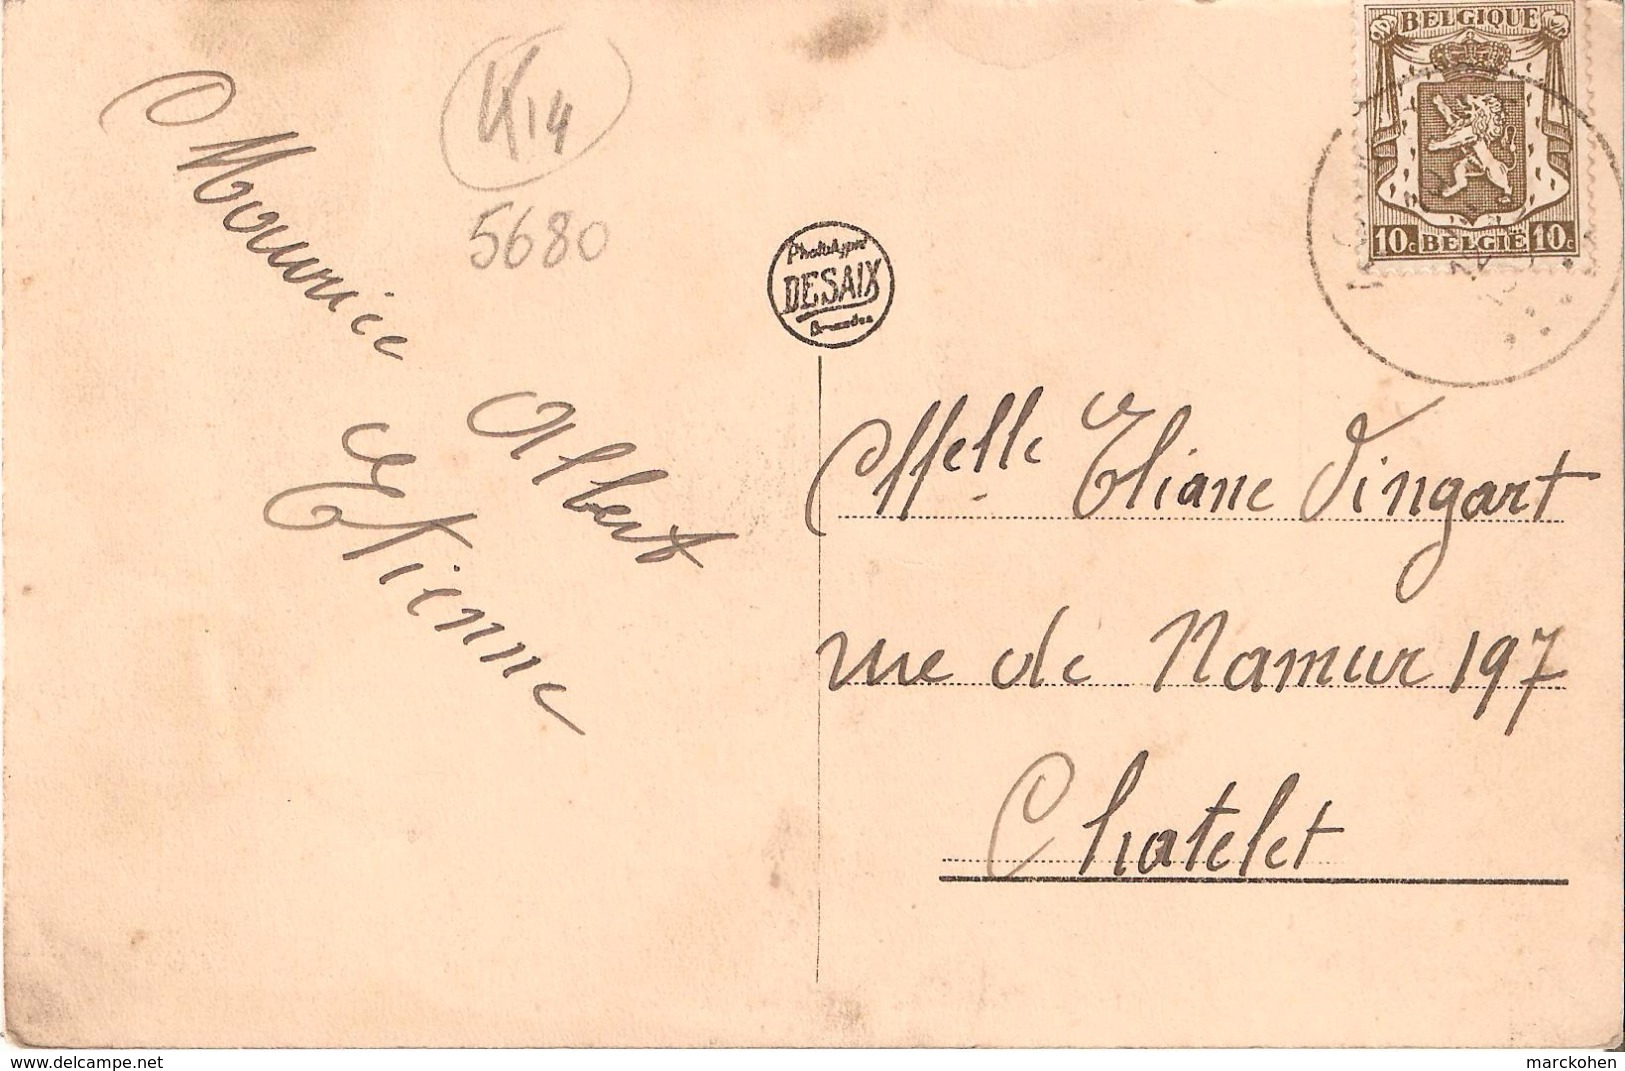 Maurice
Albert
Etienne
K14
5680
Phototypie
DESAIX
Bruxelles
BELGIQUE
10c BELGIË 10c
12
Melle Eliane Vingart
rue de Namur 197
Chatelet
www.delcampe.net
marckohen